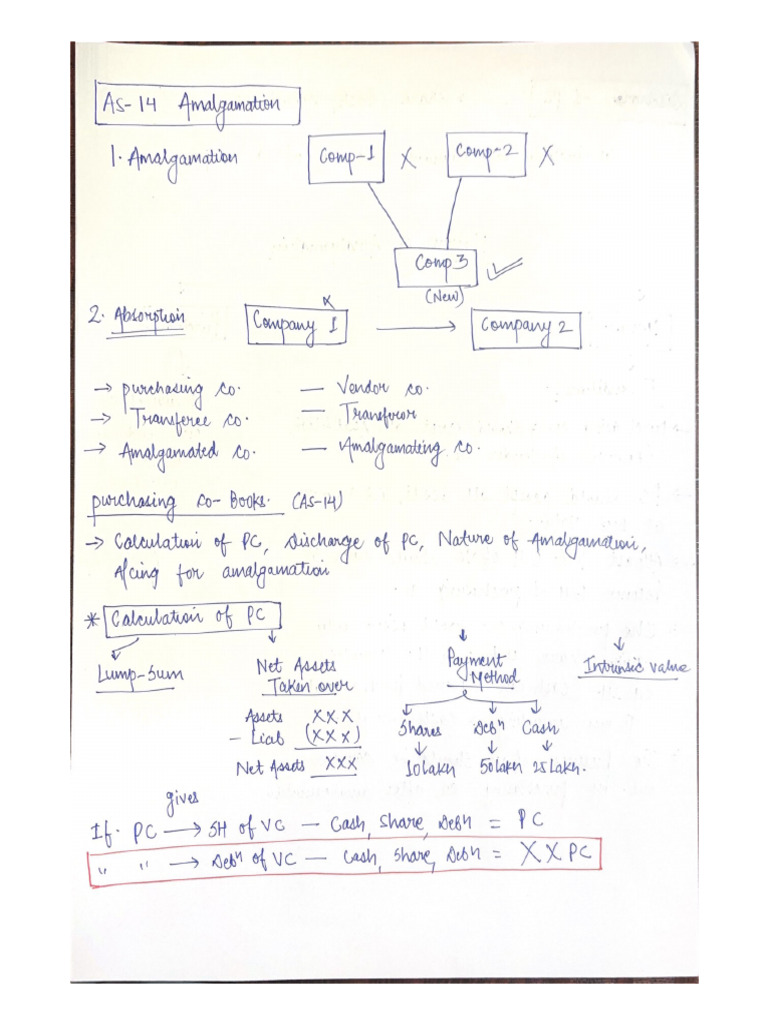 AS-14 Amalgamation
1. Amalgamation Comp-1 X Comp-2 X
Comp 3
(New)
2. Absorption Company 1 x → Company 2
→ purchasing co. — Vendor co.
→ Transferee co. — Transferor
→ Amalgamated co. — Amalgamating co.
purchasing co-Books. (AS-14)
→ Calculation of PC, Discharge of PC, Nature of Amalgamation,
A/cing for amalgamation
* Calculation of PC
Lump-Sum Net Assets Taken over Payment Method Intrinsic value
Assets XXX
- Liab (XXX)
Net Assets XXX
Shares Debⁿ Cash
10 Lakh 50 Lakh 25 Lakh.
gives
If PC → SH of VC — Cash, Share, Debⁿ = PC
" " → Debⁿ of VC — Cash, Share, Debⁿ = X X PC